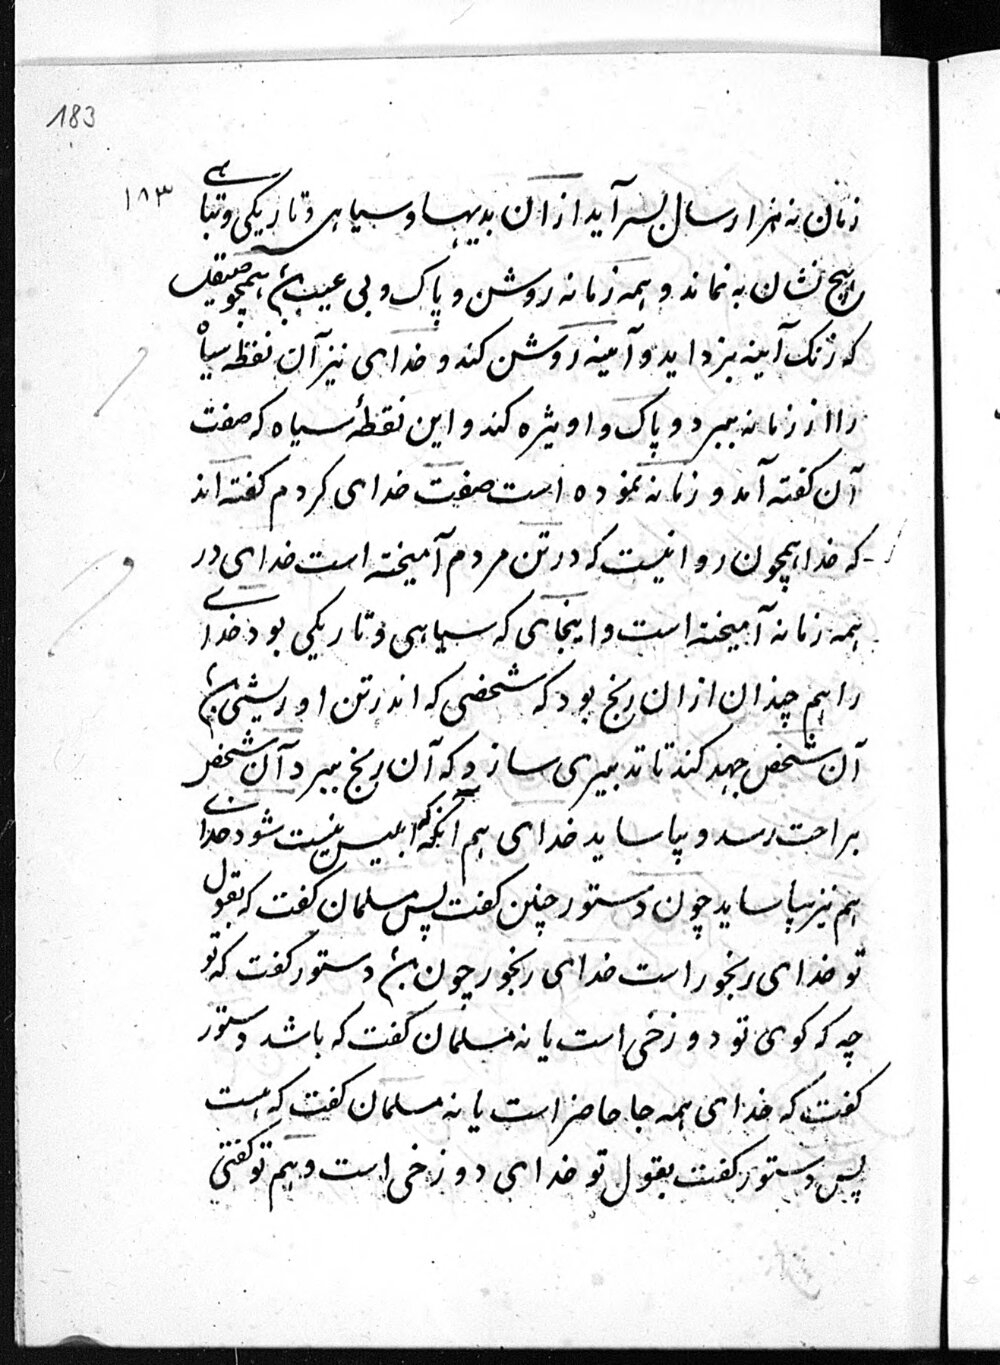 183
۱۸۳
زمان نه هزار سال بسر آید از ان بدیها و سیاهی و تاریکی و تباهی
هیچ نشان به نماند و همه زمانه روشن و پاک و بی عیب همچو صیقل
که زنک آینه بزداید و آیینه روشن کند و خدای نیز آن نقطه سیاه
را از زمانه ببرد و پاک و اویژه کند و این نقطهٔ سیاه که صفت
آن گفته آمد و زمانه نموده است صفت خدای کردم گفته اند
که خدا همچون روانیست که در تن مردم آمیخته است خدای در
همه زمانه آمیخته است و اینجای که سیاهی و تاریکی بود خدای
را هم چندان از ان رنج بود که شخصی که اندر تن او ریشی
آن شخص جهد کند تا تدبیری سازد که آن رنج ببرد آن شخص
براحت رسد و بیاساید خدای هم آنگه که ابلیس نیست شود خدای
هم نیز بیاساید چون دستور چنین گفت پس مسلمان گفت که بقول
تو خدای رنجور است خدای رنجور چون دستور گفت که تو
چه که کوی تو دوزخی است یا نه مسلمان گفت که باشد دستور
گفت که خدای همه جا حاضر است یا نه مسلمان گفت که هست
پس دستور گفت بقول تو خدای دوزخی است و هم تو گفتی